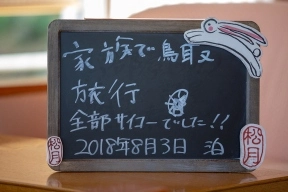 家族で鳥取
旅行
全部サイコーでした!!
2018年8月3日 泊
松月
松月